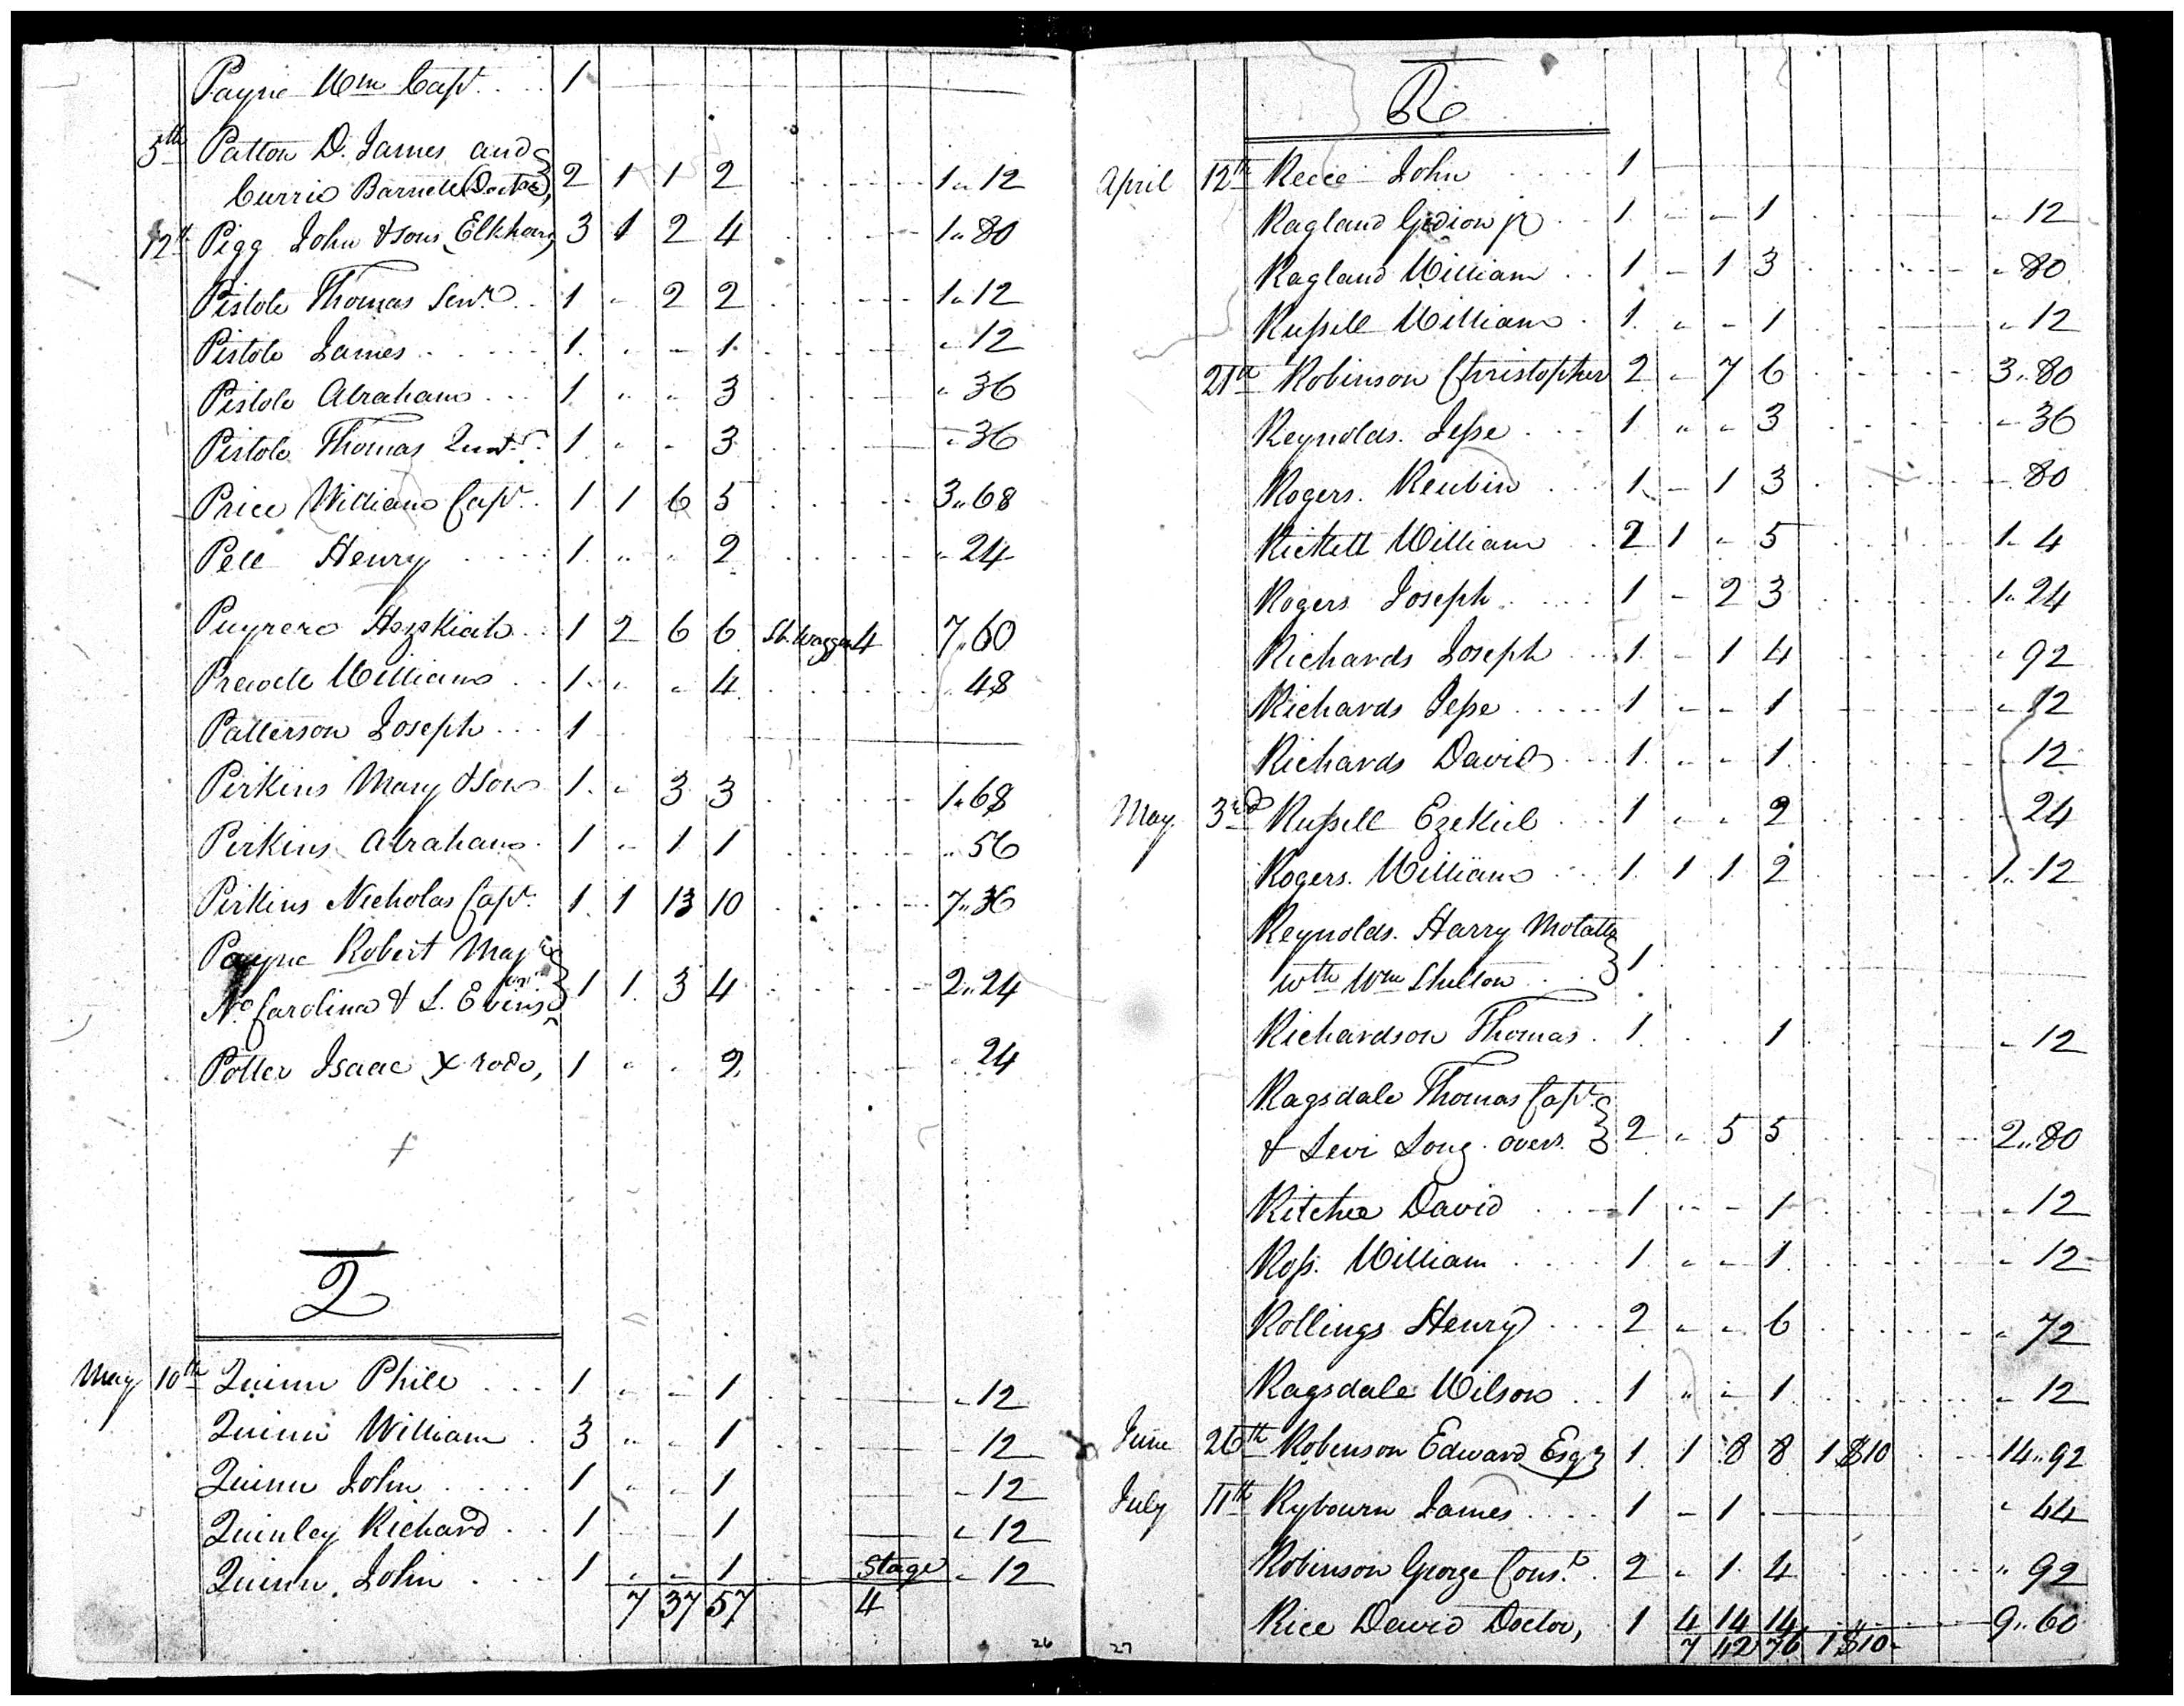 Payne Wm Capt. 1
5th Patton D. James and
Currie Barnett (Doctors) 2 1 1 2 1 „ 12
12th Pigg John & sons Elkhorn 3 1 2 4 1 „ 80
Pistole Thomas Senr. 1 „ 2 2 1 „ 12
Pistole James 1 „ – 1 „ 12
Pistole Abraham 1 „ „ 3 „ 36
Pistole Thomas 1 „ – 3 „ 36
Price William Capt. 1 1 6 5 3 „ 68
Pell Henry 1 „ „ 2 „ 24
Hezekiah 1 2 6 6 St. Waggon 4 7 „ 60
Prewett William 1 „ „ 4 „ 48
Patterson Joseph 1
Perkins Mary & son 1 „ 3 3 1 „ 68
Perkins Abraham 1 „ 1 1 „ 56
Perkins Nicholas Capt. 1 1 13 10 7 „ 36
Payne Robert Maj
No. Carolina & L. Evins 1 1 3 4 2 „ 24
Potter Isaac X rodo, 1 „ „ 2 „ 24
+
Q
May 10th Quinn Phile 1 „ – 1 – 12
Quinn William 3 „ „ 1 – 12
Quinn John 1 „ „ 1 – 12
Quinley Richard 1 – – 1 „ 12
Quinn John 1 „ – 1 Stage „ 12
7 37 57 4
26
R
April 12th Reece John 1
Ragland Gideon jr 1 – – 1 „ 12
Ragland William 1 – 1 3 „ 80
Russell William 1 „ – 1 „ 12
21st Robinson Christopher 2 – 7 6 3 „ 80
Reynolds Jesse 1 „ „ 3 „ 36
Rogers Reubin 1 – 1 3 – 80
Rickett William 2 1 „ 5 1 „ 4
Rogers Joseph 1 – 2 3 1 „ 24
Richards Joseph 1 – 1 4 „ 92
Richards Jesse 1 – – 1 „ 12
Richards David 1 „ – 1 12
May 3rd Russell Ezekiel 1 „ „ 2 24
Rogers William 1 1 1 2 1 „ 12
Reynolds Harry Molatto
wth Wm Shelton 1
Richardson Thomas 1 1 „ 12
Ragsdale Thomas Capt.
& Levi Long overs. 2 „ 5 5 2 „ 80
Ritchie David 1 „ – 1 „ 12
Ross William 1 „ – 1 „ 12
Rollings Henry 2 „ „ 6 „ 72
Ragsdale Wilson 1 „ – 1 „ 12
June 26th Robinson Edward Esqr 1 1 8 8 1 $10 14 „ 92
July 11th Rybourn James 1 – 1 „ 44
Robinson George Const. 2 „ 1 4 „ 92
Rice David Doctor, 1 4 14 14 9 „ 60
7 42 76 1 $10
27